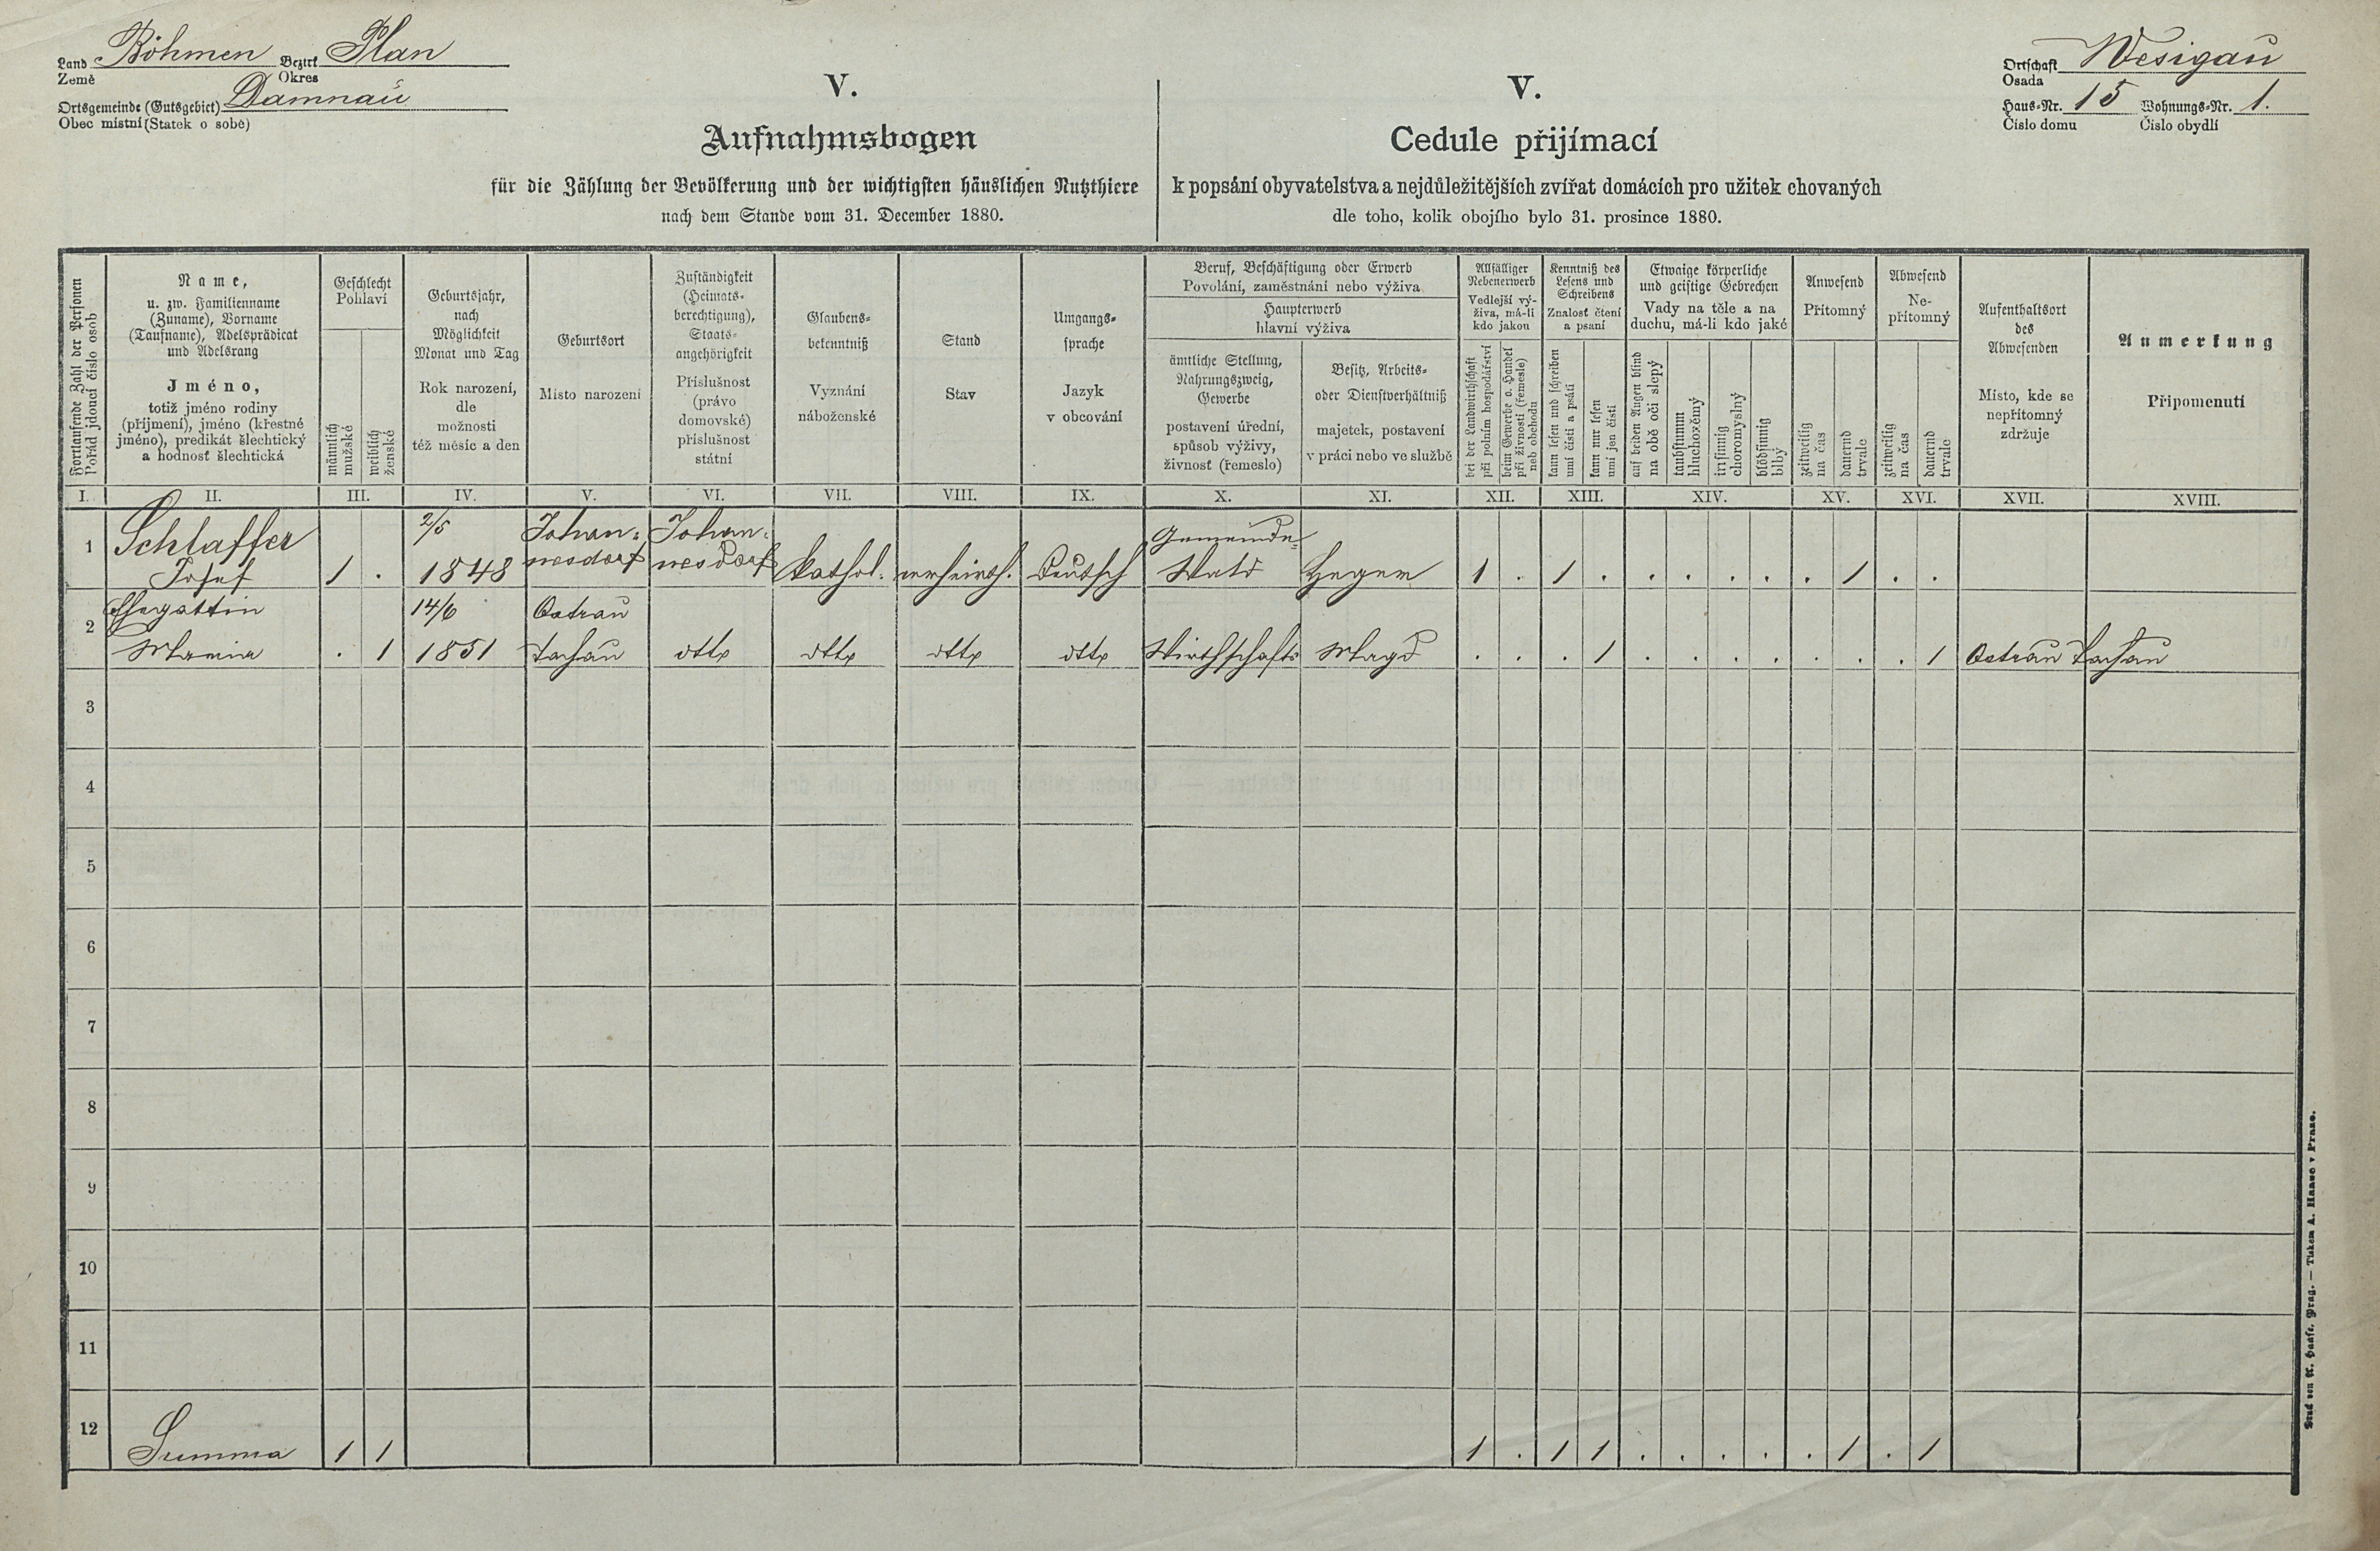 Land Böhmen Bezirk Plan
Země Okres
Ortsgemeinde (Gutsgebiet) Damnau
Obec místní (Statek o sobě)
Ortschaft Wesigau
Osada
Haus-Nr. 15 Wohnungs-Nr. 1.
Číslo domu Číslo obydlí
V.
Aufnahmsbogen
für die Zählung der Bevölkerung und der wichtigsten häuslichen Nutzthiere
nach dem Stande vom 31. December 1880.
V.
Cedule přijímací
k popsání obyvatelstva a nejdůležitějších zvířat domácích pro užitek chovaných
dle toho, kolik obojího bylo 31. prosince 1880.
Fortlaufende Zahl der Personen
Pořád jdoucí číslo osob
Name,
u. zw. Familienname
(Zuname), Vorname
(Taufname), Adelsprädicat
und Adelsrang
Jméno,
totiž jméno rodiny
(příjmení), jméno (křestné
jméno), predikát šlechtický
a hodnosť šlechtická
Geschlecht
Pohlaví
männlich
mužské
weiblich
ženské
Geburtsjahr,
nach
Möglichkeit
Monat und Tag
Rok narození,
dle
možnosti
též měsíc a den
Geburtsort
Místo narození
Zuständigkeit
(Heimats-
berechtigung),
Staats-
angehörigkeit
Příslušnost
(právo
domovské)
příslušnost
státní
Glaubens-
bekenntniß
Vyznání
náboženské
Stand
Stav
Umgangs-
sprache
Jazyk
v obcování
Beruf, Beschäftigung oder Erwerb
Povolání, zaměstnání nebo výživa
Haupterwerb
hlavní výživa
ämtliche Stellung,
Nahrungszweig,
Gewerbe
postavení úřední,
spůsob výživy,
živnosť (řemeslo)
Besitz, Arbeits-
oder Dienstverhältniß
majetek, postavení
v práci nebo ve službě
Allfälliger
Nebenerwerb
Vedlejší vý-
živa, má-li
kdo jakou
bei der Landwirthschaft
při polním hospodářství
beim Gewerbe o. Handel
při živnosti (řemesle)
neb obchodu
Kenntniß des
Lesens und
Schreibens
Znalosť čtení
a psaní
kann lesen und schreiben
umí čísti a psáti
kann nur lesen
umí jen čísti
Etwaige körperliche
und geistige Gebrechen
Vady na těle a na
duchu, má-li kdo jaké
auf beiden Augen blind
na obě oči slepý
taubstumm
hluchoněmý
irrsinnig
choromyslný
blödsinnig
blbý
Anwesend
Přítomný
zeitweilig
na čas
dauernd
trvale
Abwesend
Ne-
přítomný
zeitweilig
na čas
dauernd
trvale
Aufenthaltsort
des
Abwesenden
Místo, kde se
nepřítomný
zdržuje
Anmerkung
Připomenutí
I. II. III. IV. V. VI. VII. VIII. IX. X. XI. XII. XIII. XIV. XV. XVI. XVII. XVIII.
Schlaffer 2/5 Johan= Johan= Gemeinde=
1 Josef 1 . 1848 nesdorf nesdorf kathol. verheirth. Deutsch Wald Heger 1 . 1 . . . . . . 1 . .
Ehegattin 14/6 Ostrau
2 Maria . 1 1851 Tachau otto otto otto otto Wirthschafts Magd . . . 1 . . . . . . . 1 Ostrau Tachau
3
4
5
6
7
8
9
10
11
12 Summa 1 1 1 . 1 1 . . . . . 1 . 1
Druck von A. Haase, Prag. — Tiskem A. Haase v Praze.